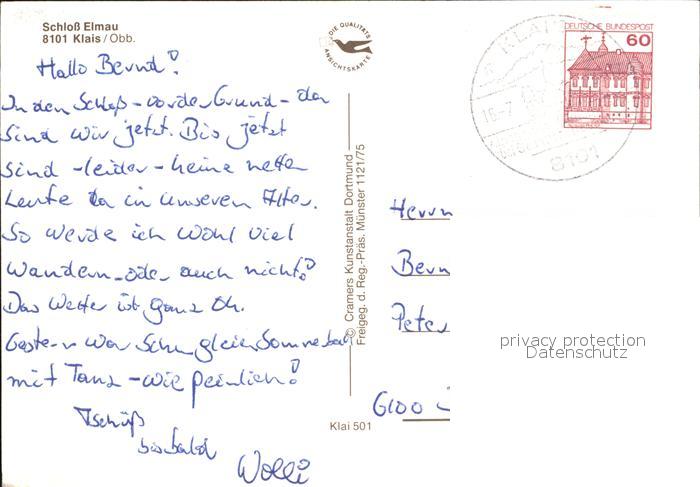 Schloß Elmau
8101 Klais / Obb.
DIE QUALITÄTS
ANSICHTSKARTE
Hallo Bernd!
In den Schloß - vorder Grund - da
sind wir jetzt. Bis jetzt
sind - leider - keine netten
Leute da in unseren Alter.
So werde ich wohl viel
wandern - oder auch nicht!
Das Wetter ist ganz Ok.
Gestern war schon gleich Sommerball
mit Tanz - wie peinlich!
Tschüß
bis bald
Wolli
© Cramers Kunstanstalt Dortmund
Freigeg. d. Reg.-Präs. Münster 1121/75
Klai 501
DEUTSCHE BUNDESPOST
60
KLAIS
16.-7
8101
Herrn
Bern
Peter
6100
privacy protection
Datenschutz